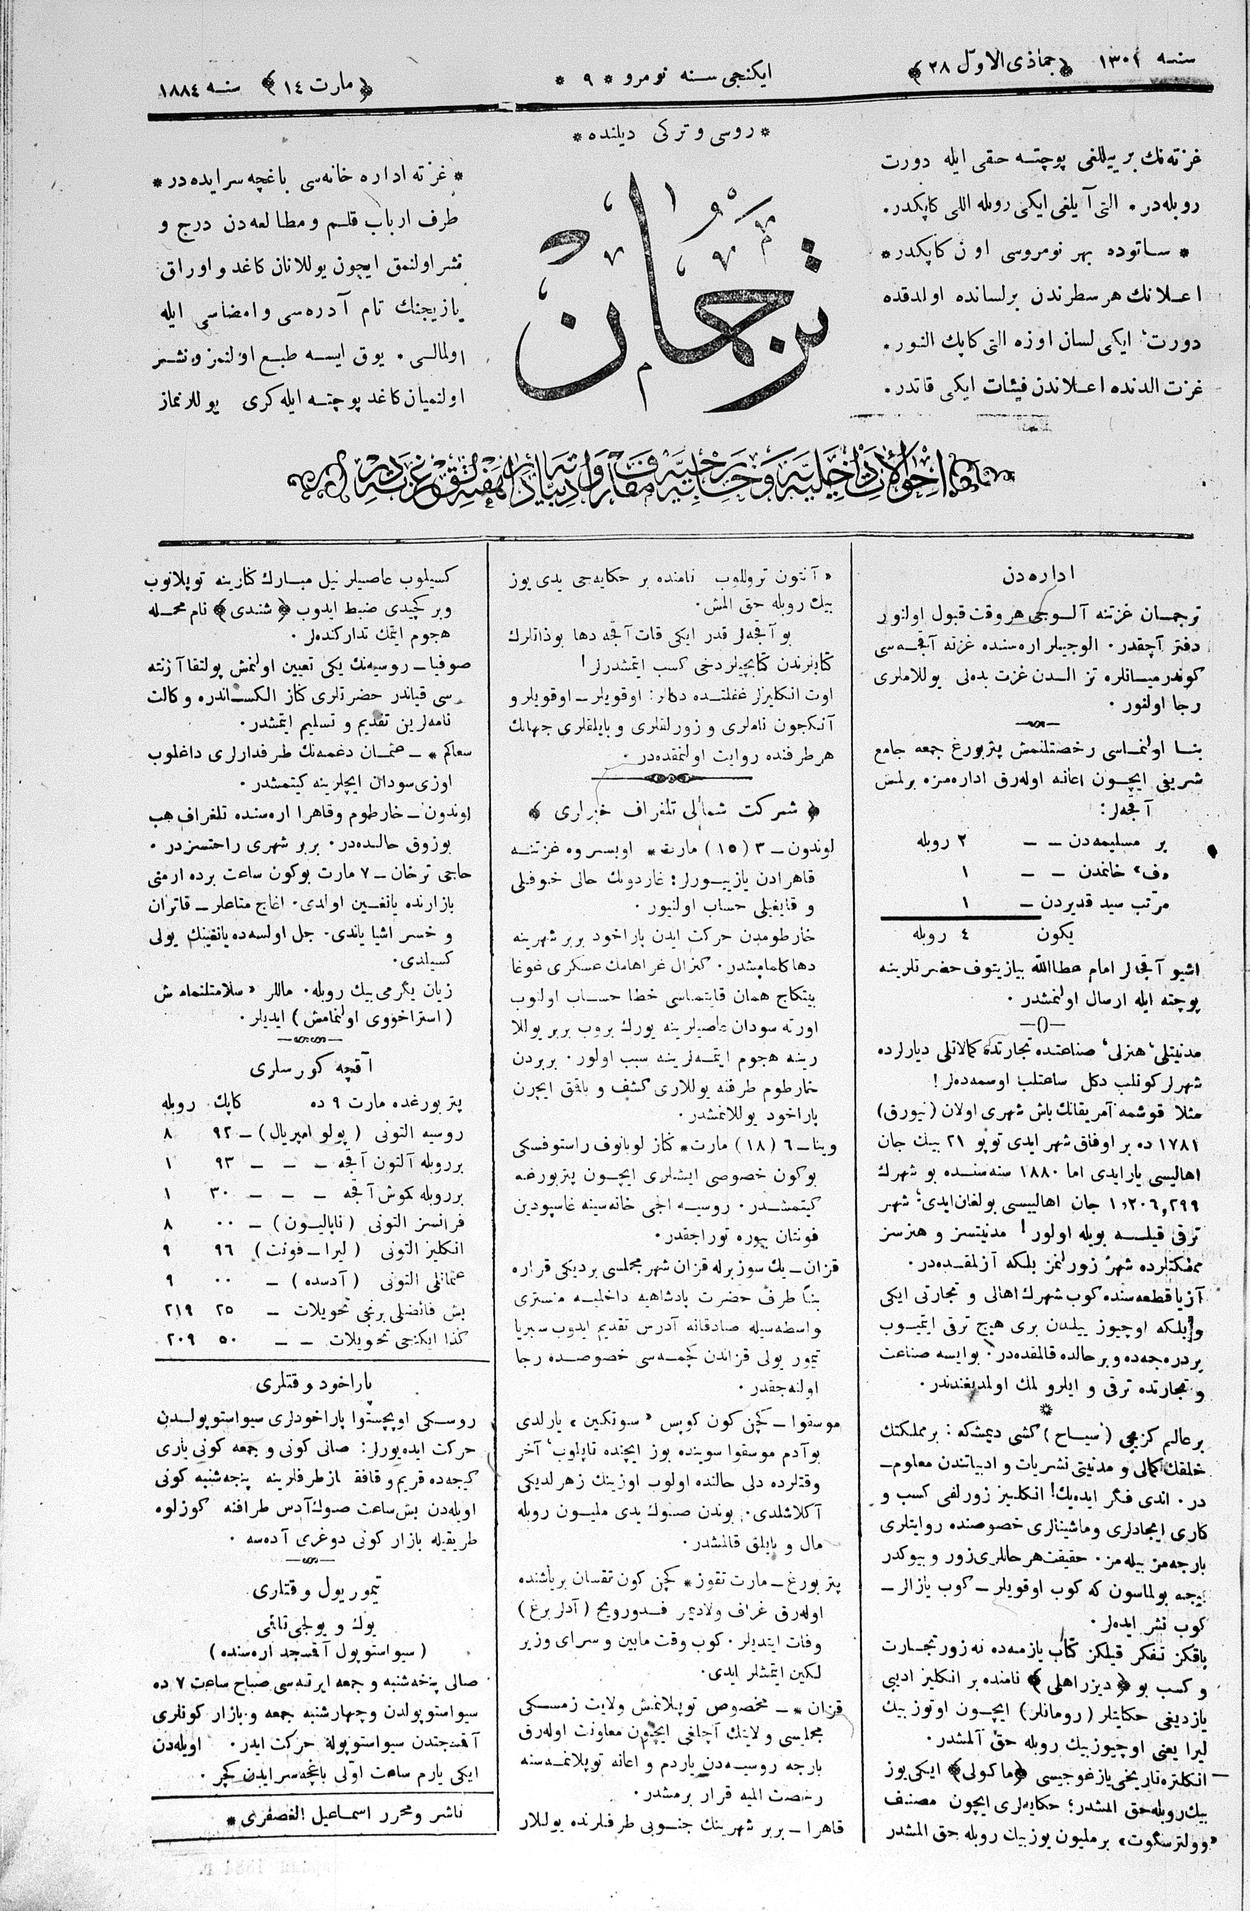 سنه ١٣٠١ ﴿ جماذی الاوّل ٢٨ ﴾
ایکنجی سنه نومرو * ٩ *
﴿ مارت ١٤ ﴾ سنه ١٨٨٤
* روسی و ترکی دیلنده *
غزته‌نك بر ییللغی پوچته حقی ایله دورت
روبله‌در. التی آیلغی ایکی روبله اللی کاپکدر.
* ساتوده بهر نومروسی اون کاپکدر *
اعلانك هر سطرندن بر لسانده اولدقده
دورت، ایکی لسان اوزه التی کاپك النور.
غزت الدنده اعلاندن فیئات ایکی قاتدر.
ترجمان
* غزته اداره خانه‌سی باغچه سرایده‌در *
طرف ارباب قلم و مطالعه‌دن درج و
نشر اولنمق ایچون یوللانان کاغد و اوراق
یازیجینك تام آدره‌سی و امضاسی ایله
اولمالی. یوق ایسه طبع اولنمز و نشر
اولنمیان کاغد پوچته ایله کری یوللانماز
اداره‌دن
ترجمان غزتنه آلوجی هر وقت قبول اولنور
دفتر آچقدر. الوجیلر اره‌سنده غزته آقچه‌سی
کوندرمیانلره تز الدن غزت بدنی یوللاملری
رجا اولنور.
بنا اولنماسی رخصتلنمش پتربورغ جمعه جامع
شریفی ایچون اعانه اوله‌رق اداره‌مزه برلمش
آقچه‌لر:
بر مسلیمه‌دن — — ٢ روبله
«ف» خانمدن — — ١
مرتب سید قدیردن — ١
یکون ٤ روبله
اشبو آقچه‌لر امام عطاالله بیازیتوف حضرتلرینه
پوچته ایله ارسال اولنمشدر.
مدنیتلی، هنرلی، صناعتده تجارتده کمالاتلی دیارلرده
شهرلر کونلب دکل ساعتلب اوسمه‌ده‌لر!
مثلا قوشمه آمریقانك باش شهری اولان (نیورق)
١٧٨١ ده بر اوفاق شهر ایدی توپو ٢١ بیك جان
اهالیسی یار ایدی اما ١٨٨٠ سنه‌سنده بو شهرك
١,٢٠٦,٢٩٩ جان اهالیسی بولغان ایدی؛ شهر
ترقی قیلسه بویله اولور! مدنیتسز و هنرسز
مملکتلرده شهر زورلنمز بلکه آزلمقده‌در.
آزیا قطعه‌سنده کوب شهرك اهالی و تجارتی ایکی
و بلکه اوچیوز ییلدن بری هیچ ترقی ایتمیوب
بر درجه‌ده و بر حالده قالمقده‌در. بو ایسه صناعت
و تجارتده ترقی و ایلرولمك اولمدیغندندر.
بر عالم کزیجی (سیاح) کشی دیمشکه: بر مملکتنك
خلقنك کمالی و مدنیتی نشریات و ادبیاتندن معلوم-
در. اندی فکر ایده‌یك! انکلیز زورلغی کسب و
کاری ایجادلری و ماشینالری خصوصنده روایتلری
بارچه‌مز بیله‌مز. حقیقت هر حاللری زور و بیوکدر
نیچه بولماسون که کوب اوقویلر — کوب یازالر —
کوب نشر ایده‌لر.
باقکز تفکر قیلکز کتاب یازمه‌ده نه زور تجارت
و کسب بو ﴿ دیزراهلی ﴾ نامنده بر انکلیز ادیبی
یازدیغی حکایتلر (رومانلر) ایچون اوتوز بیك
لیرا یعنی اوچیوز بیك روبله حق آلمشدر.
انکلتره تاریخی یازغوجیسی ﴿ماکولی﴾ ایکی یوز
بیك روبله حق المشدر؛ حکایه‌لری ایچون مصنف
«وولترسقوت» بر ملیون یوز بیك روبله حق المشدر
« آنتون تروللوب نامنده بر حکایه‌جی یدی یوز
بیك روبله حق المش.
بو آقچه‌لر قدر ایکی قات آقچه دها بو ذاتلرك
کتابلرندن کتابچیلر دخی کسب ایتمشدرلر!
اوت انکلیزلر غفلتده دکلر: اوقویلر — اوقویلر و
آنکچون ناملری و زورلقلری و بایلقلری جهانك
هر طرفنده روایت اولنمقده‌در.
﴿ شمرکت شمالی تلغراف خبراری ﴾
لوندون — ٣ (١٥) مارت * اوبسروه غزتنه
قاهرادن یازیورلر: غاردونك حالی خوفلی
و قایغیلی حساب اولنیور.
خارطومدن حرکت ایدن پاراخود بربر شهرینه
دها کلمامشدر. کنرال غراهامك عسکری غوغا
بیتکاج همان قایتماسی خطا حساب اولنوب
اورته سودان عاصیلرینه یورك بروب بربر یوللا
رینه هجوم ایتمه‌لرینه سبب اولور. بربردن
خارطوم طرفنه یوللاری کشف و باقق ایچون
پاراخود یوللانمشدر.
وینا — ٦ (١٨) مارت * کناز لوبانوف راستوفسکی
بوکون خصوصی ایشلری ایچون پتربورغه
کیتمشدر. روسیه الچی خانه‌سینه غاسپودین
فونتان بیوره تورا جقدر.
قزان — یك سوز برله قزان شهر مجلسی بردیکی قراره
بناً طرف حضرت پادشاهیه داخلیه منستری
واسطه‌سیله صادقانه آدرس تقدیم ایدوب سبریا
تیمور یولی قزاندن کچمه‌سی خصوصده رجا
اولنه‌جقدر.
موسقوا — کچن کون کوپس «سوتکین» یارلدی
بو آدم موسقوا سوینده بوز ایچنده تاپلوب، آخر
وقتلرده دلی حالنده اولوب اوزینك زهرلدیکی
آکلاشلدی. بوندن صوك یدی ملیون روبله
مال و بایلق قالمشدر.
پتربورغ — مارت تقوز * کچن کون تقسان بر یاشنده
اوله‌رق غراف ولادیمیر فدورویچ (آدلربرغ)
وفات ایتدیلر. کوب وقت مابین و سرای وزیر
لکین ایتمشلر ایدی.
قزان * — مخصوص توپلانمش ولایت زمسکی
مجلیسی ولایتك آچلغی ایچون معاونت اوله‌رق
بارچه روسیه‌دن یاردم و اعانه توپلانمه‌سنه
رخصت المیه قرار برمشدر.
قاهرا — بربر شهرینك جنوبی طرفلرنده یوللار
کسیلوب عاصیلر نیل مبارك کنارینه توپلانوب
و بر کچیدی ضبط ایدوب ﴿ شندی ﴾ نام محله
هجوم ایتمك تدارکنده‌لر.
صوفیا — روسیه‌نك یکی تعیین اولنمش پولتقا آژنته
سی قیاندر حضرتلری کناز الکساندره وکالت
نامه‌لرین تقدیم و تسلیم ایتمشدر.
سعاکم * — عثمان دغمه‌نك طرفدارلری داغلوب
اوزی سودان ایچلرینه کیتمشدر.
لوندون — خارطوم و قاهرا اره‌سنده تلغراف هب
بوزوق حالده‌در. بربر شهری راحتسزدر.
حاجی ترخان — ٧ مارت بوکون ساعت برده ارمنی
بازارنده یانغین اولدی. اغاج متاعلر — قاتران
و خسر اشیا یاندی. جل اولسه‌ده یانقینك یولی
کسیلدی.
زیان یگرمی بیك روبله. ماللر «سلامتلنمامش
(استراخووی اولنمامش) ایدیلر.
آقچه کورسلری
پتربورغده مارت ٩ ده کاپك روبله
روسیه التونی (پولو امپریال) — ٩٢ ٨
بر روبله آلتون آقچه — — — ٩٣ ١
بر روبله کموش آقچه — — — ٣٠ ١
فرانسز التونی (ناپالیون) — ٠٠ ٨
انکلیز التونی (لیرا — فونت) ٩٦ ٩
عثمانلی التونی (آدسده) — ٠٠ ٩
بش فائضلی برنجی تحویلات — ٢٥ ٢١٩
کذا ایکنجی تحویلات — — ٥٠ ٢٠٩
پاراخود وقتلری
روسکی اوپچستوا پاراخودلری سیواستوپولدن
حرکت ایده‌یورلر: صالی کونی و جمعه کونی یاری
کیجه‌ده قریم و قافقاز طرفلرینه پنجه‌شنبه کونی
اویله‌دن بش ساعت صوك آدس طرافنه کوزلوه
طریقیله بازار کونی دوغری آده‌سه.
تیمور یول وقتلری
یوك و یولجی نائمی
( سیواستوپول آقمسجد اره‌سنده )
صالی پنجه‌شنبه و جمعه ایرته‌سی صباح ساعت ٧ ده
سیواستوپولدن و چهارشنبه جمعه و بازار کونلری
آقمسجتدن سیواستوپوله حرکت ایدر. اویله‌دن
ایکی یارم ساعت اولی باغچه سرایدن کچر.
ناشر و محرر اسماعیل الغصفری *